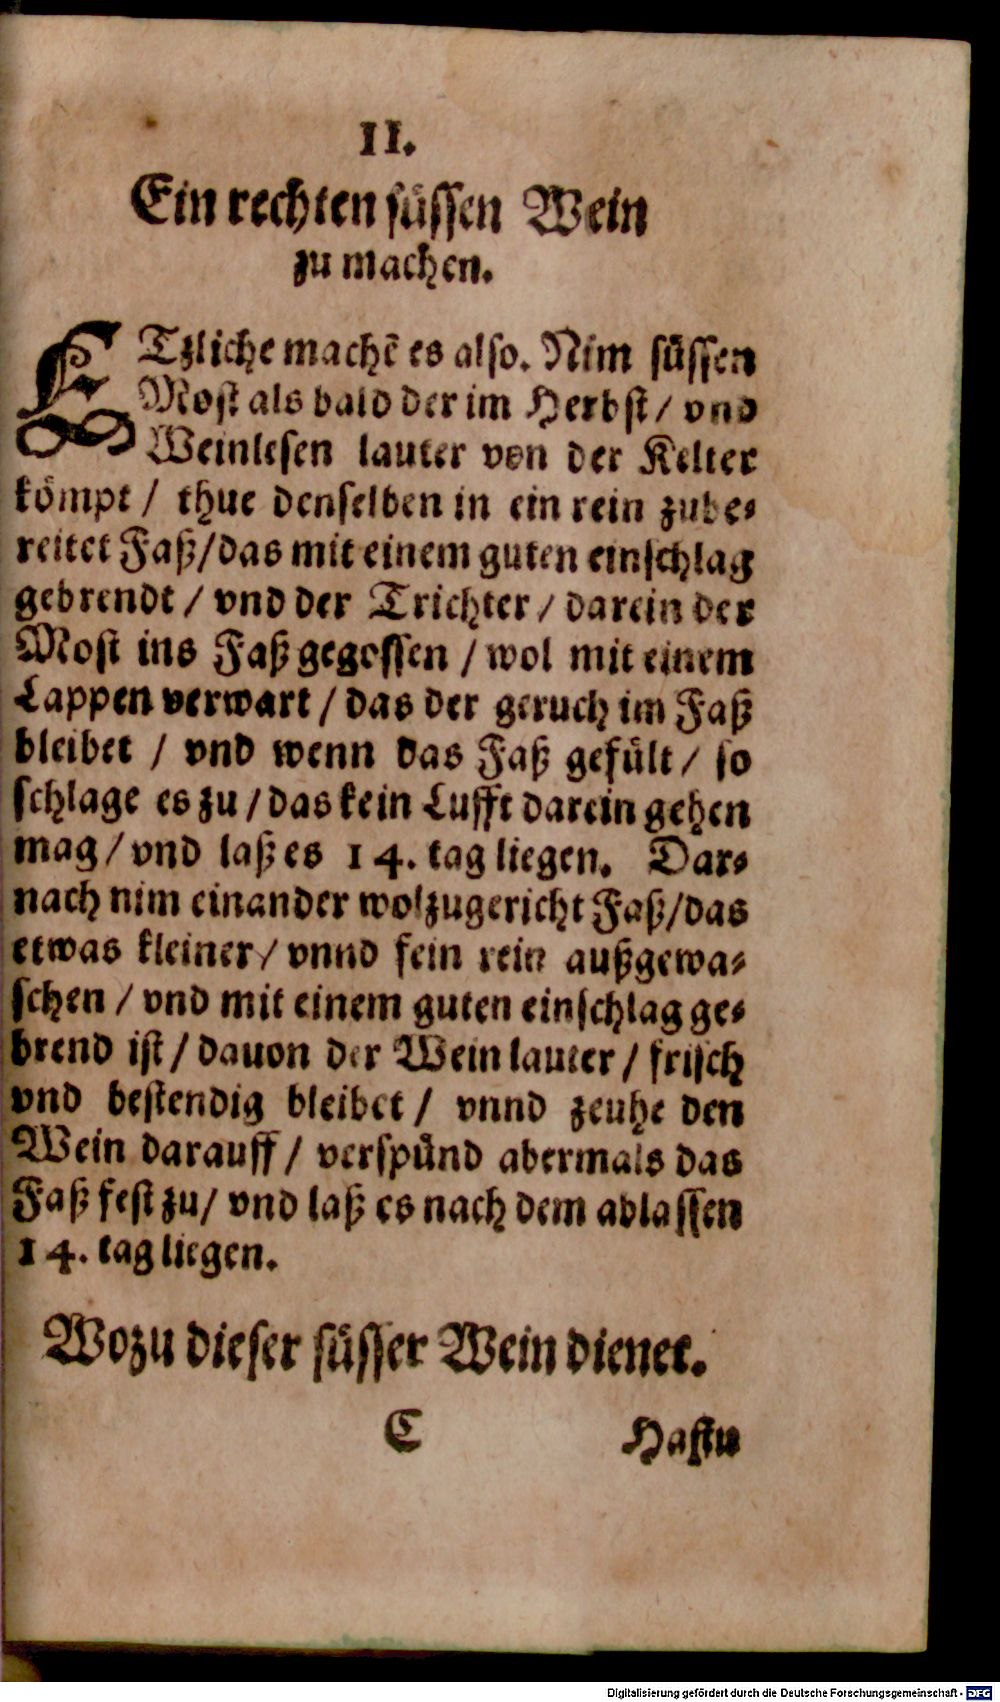 II.
Ein rechten süssen Wein
zu machen.
ETzliche machẽ es also. Nim süssen
Most als bald der im Herbst / vnd
Weinlesen lauter von der Kelter
kömpt / thue denselben in ein rein zube-
reitet Faß / das mit einem guten einschlag
gebrendt / vnd der Trichter / darein der
Most ins Faß gegossen / wol mit einem
Lappen verwart / das der geruch im Faß
bleibet / vnd wenn das Faß gefült / so
schlage es zu / das kein Lufft darein gehen
mag / vnd laß es 14. tag liegen. Dar-
nach nim einander wolzugericht Faß / das
etwas kleiner / vnnd fein rein außgewa-
schen / vnd mit einem guten einschlag ge-
brend ist / dauon der Wein lauter / frisch
vnd bestendig bleibet / vnnd zeuhe den
Wein darauff / verspünd abermals das
Faß fest zu / vnd laß es nach dem ablassen
14. tag liegen.
Wozu dieser süsser Wein dienet.
C Hastu
Digitalisierung gefördert durch die Deutsche Forschungsgemeinschaft - DFG